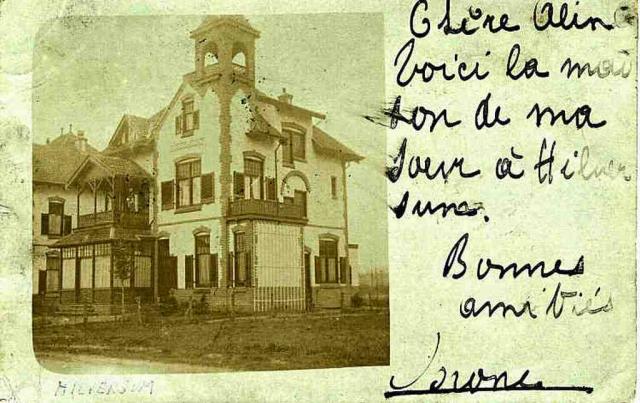 Chère Aline
Voici la mai
son de ma
soeur à Hilver
sum.
Bonnes
amitiés
HILVERSUM